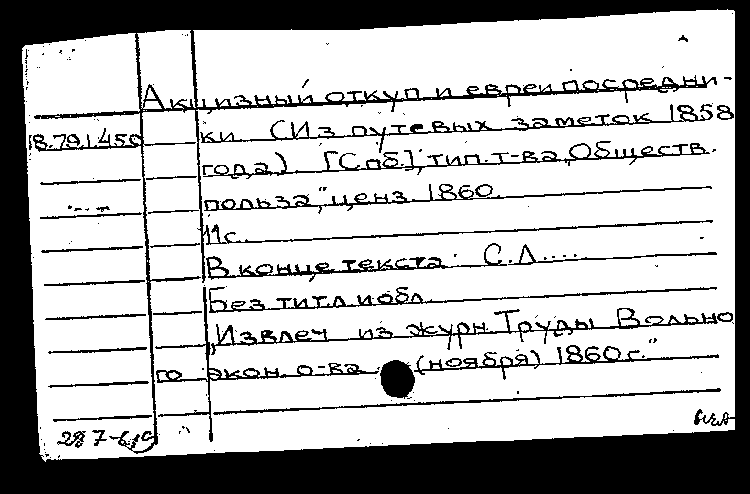 Акцизный откуп и евреи посредни-
18.79.1.450 ки (Из путевых заметок 1858
года). [Спб.], тип. т-ва "Обществ.
польза", ценз. 1860.
11с.
В конце текста: С.Л....
Без тит.л и обл.
"Извлеч из журн Труды Вольно
го экон. о-ва (ноября) 1860 г."